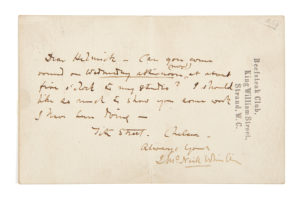 Dear Hedrick - Can you come
round on Wednesday afternoon, at about
(next)
five o'clock to my studio? I should
like so much to show you some work
I have been doing -
Tite Street. Chelsea -
Always yours
J. McNeill Whistler
Beefsteak Club,
King William Street,
Strand, W.C.